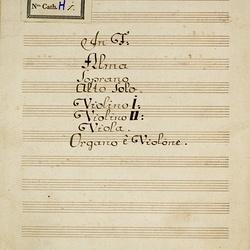 Nro Cath. H
In F:
Alma
Soprano
Alto Solo.
Violino I:
Violino II:
Viola.
Organo è Violone.